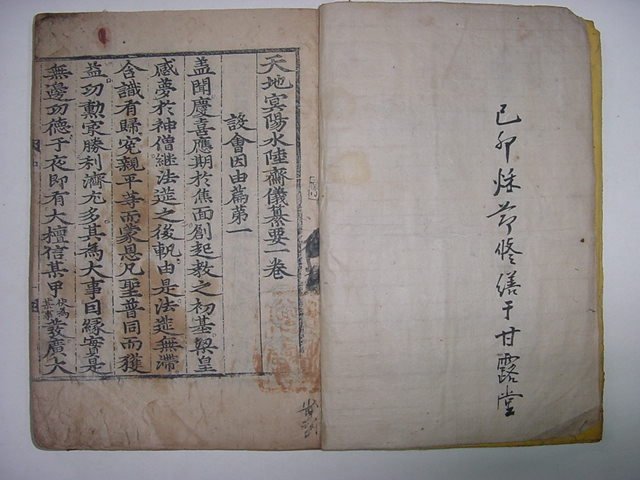 己卯秌節修繕于甘露堂
天地冥陽水陸齋儀纂要一卷
設會因由篇第一
盖聞慶喜應期於焦面創起教之初基梁皇
感夢於神僧継法筵之後軌由是法筵無滯
含識有歸寃親平等而蒙恩凡聖普同而獲
益功勲寂勝利濟尤多其為大事因緣實是
無邊功德于夜即有大檀信某甲伏為某事發廣大